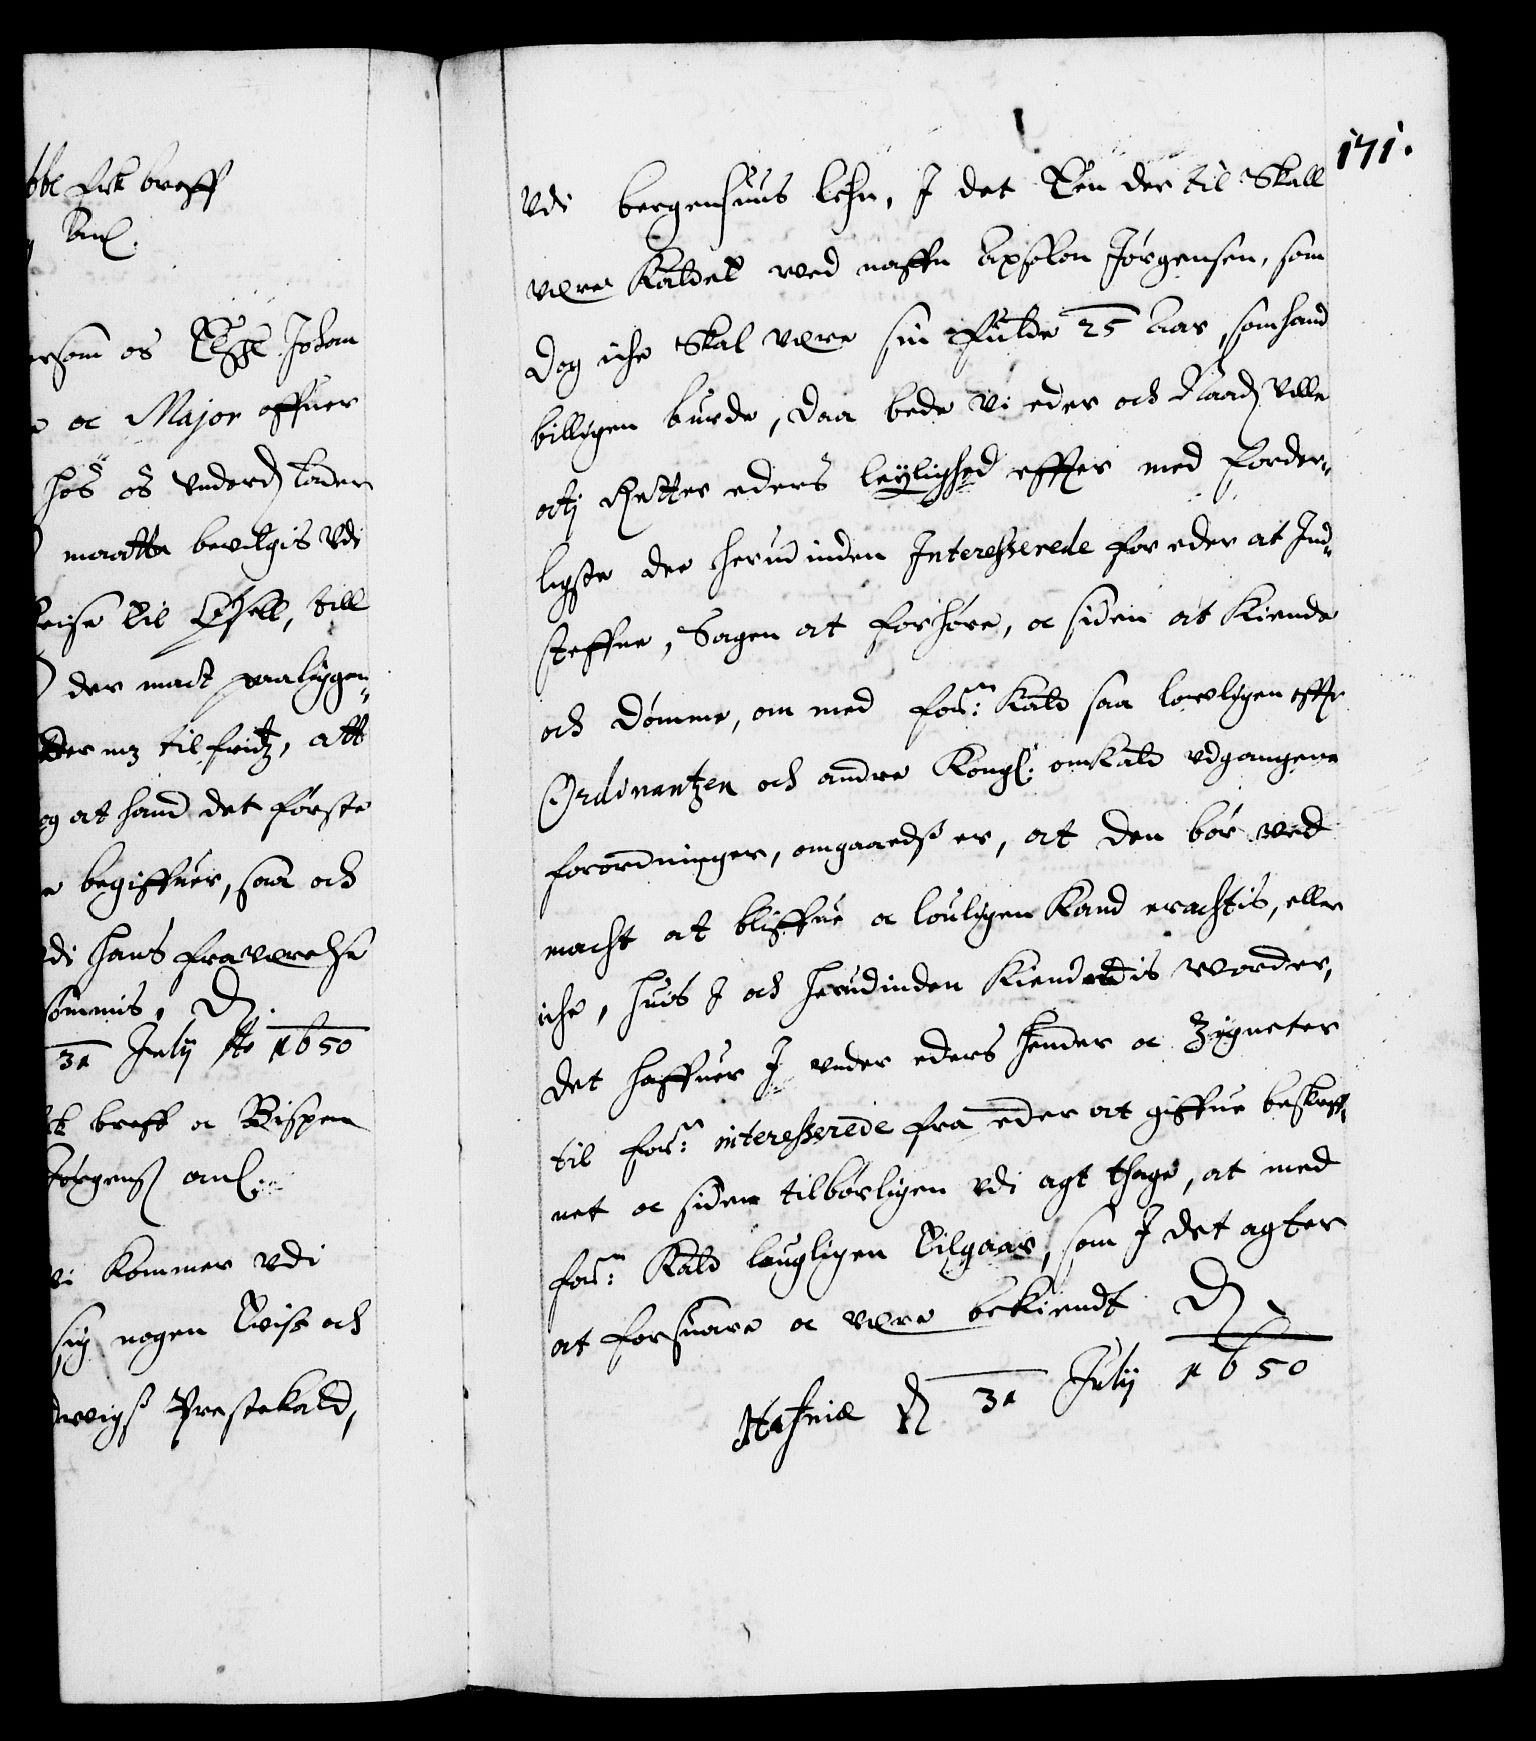 fik breff
anl.
ersom os Jokom
oc Major offuer
hos os underd: lader
maatte bevilgis Udi
reise til Øsell, till
der mact paaligen-
til fridtz, att
og at hand det første
begiffuer, saa och
di hans fraværelse
sømmis, D.
31 July Ao 1650
breff oc Bispen
Jørgens: anl:
vi kommer udi
sig nogen tvist och
Prestekald,
171.
Udi bergenhuus lehn, I det Een der til Skall
være Kaldet ved naffn Apsolon Jørgensen, som
dog iche Skal være sin Fulde 25 Aar, som hand
billigen burde, daa bede Vi eder och Naad: ville
atj Retter eders leylighed effter med forder-
ligste der herudinden Interesserede for eder at Ind-
steffne, Sagen at forhøre, oc siden at Kiende
och dømme, om med for:ne Kald saa lovligen effter
Ordinantzen och andre Kongl: omkald udgangene
forordninger, omgaaeds er, at den bør ved
macht at bliffue oc louligen Kand erachtis, eller
iche, huis I och herudinden Kiendendis worder,
det haffuer I under eders hender oc Zigneter
til for:ne interesserede fra eder at giffue beskreff-
net oc siden tilbørligen udi agt thage, at med
for:ne Kald laugligen tilgaar, som I det agter
at forsuare oc være bekiendt D.
Hafniæ d. 31 July 1650